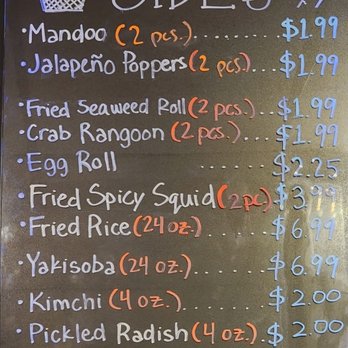 SIDES
·Mandoo (2 pcs.)......$1.99
·Jalapeño Poppers (2 pcs)...$1.99
·Fried Seaweed Roll (2 pcs.)..$1.99
·Crab Rangoon (2 pcs.)....$1.99
·Egg Roll ......$2.25
·Fried Spicy Squid (2pc) $3.99
·Fried Rice (24 oz.)......$6.99
·Yakisoba (24 oz.).......$6.99
·Kimchi (4 oz.).........$2.00
·Pickled Radish (4 oz.)...$2.00